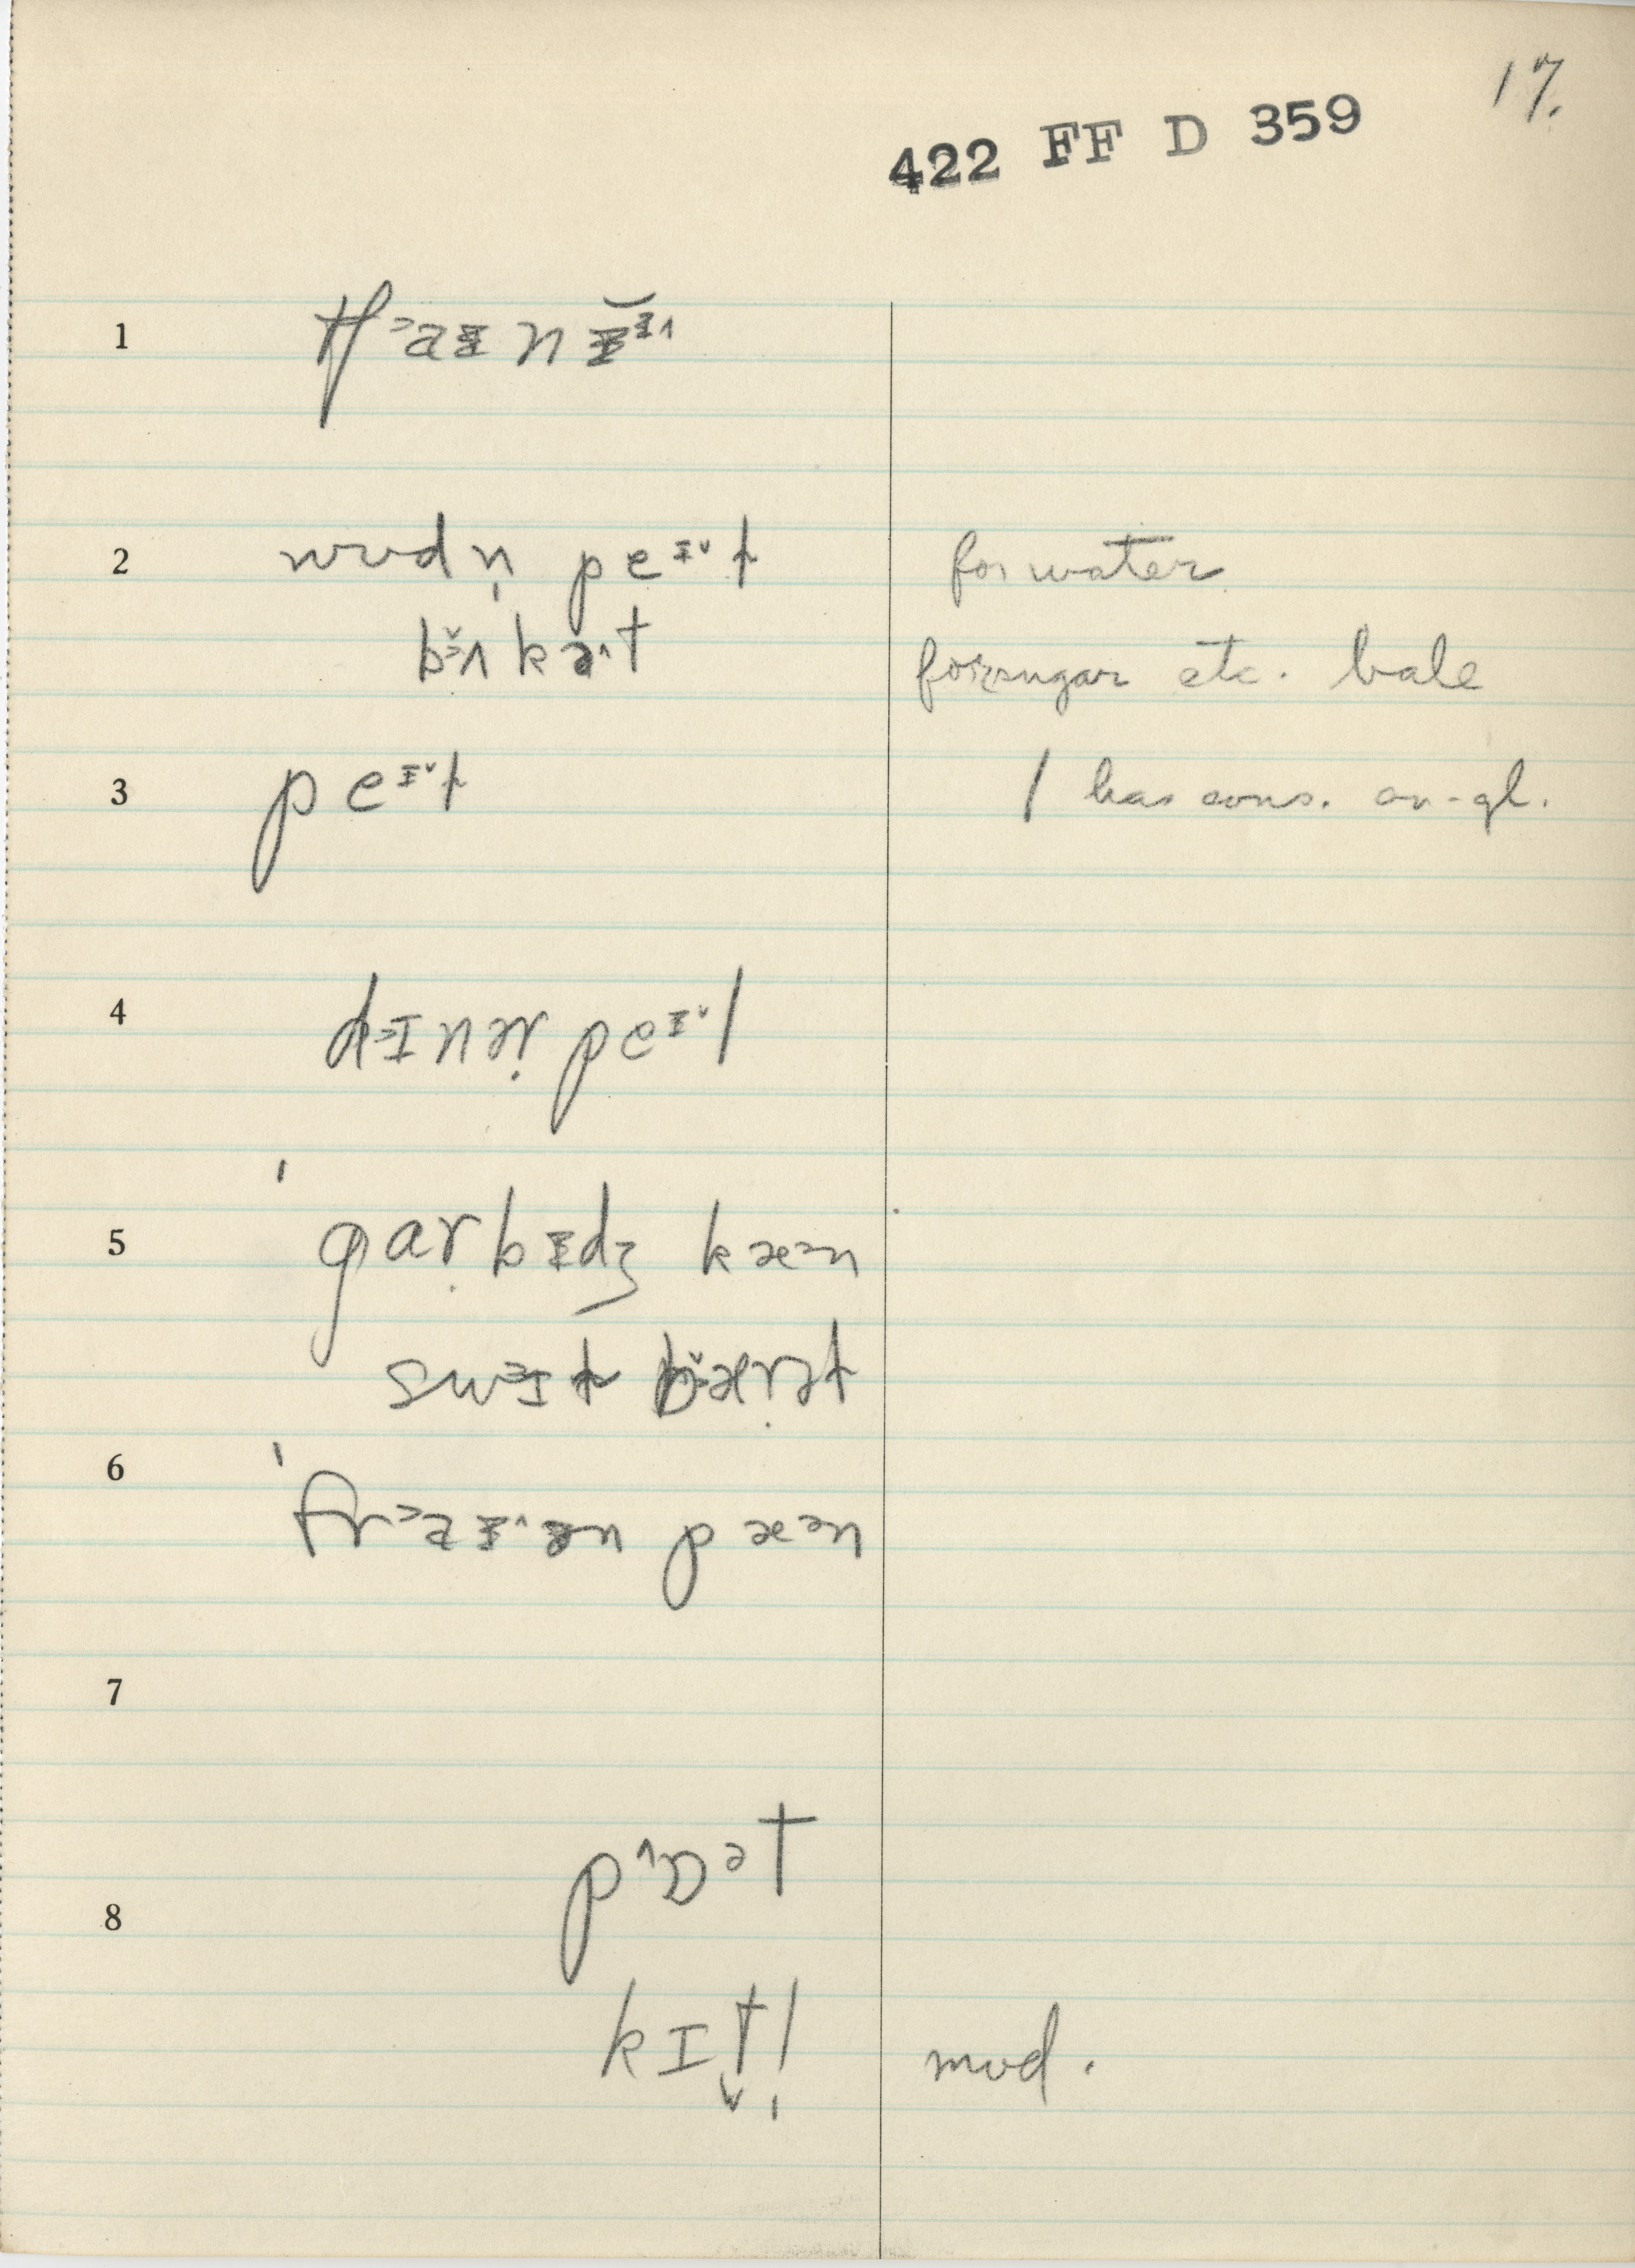 17.
422 FF D 359
1 tʃᵊaɪ nɪ
2 wʊdn̩ peɪˇl for water
bʌkət for sugar etc. bale
3 peɪˇl l has cons. on-gl.
4 dɪnər peɪˇl
5 ˈgarbɪdʒ kæᵊn
swɪl bærəl
6 ˈfraɪən pæᵊn
7
pɒᵊt
8
kɪtl̩ mod.